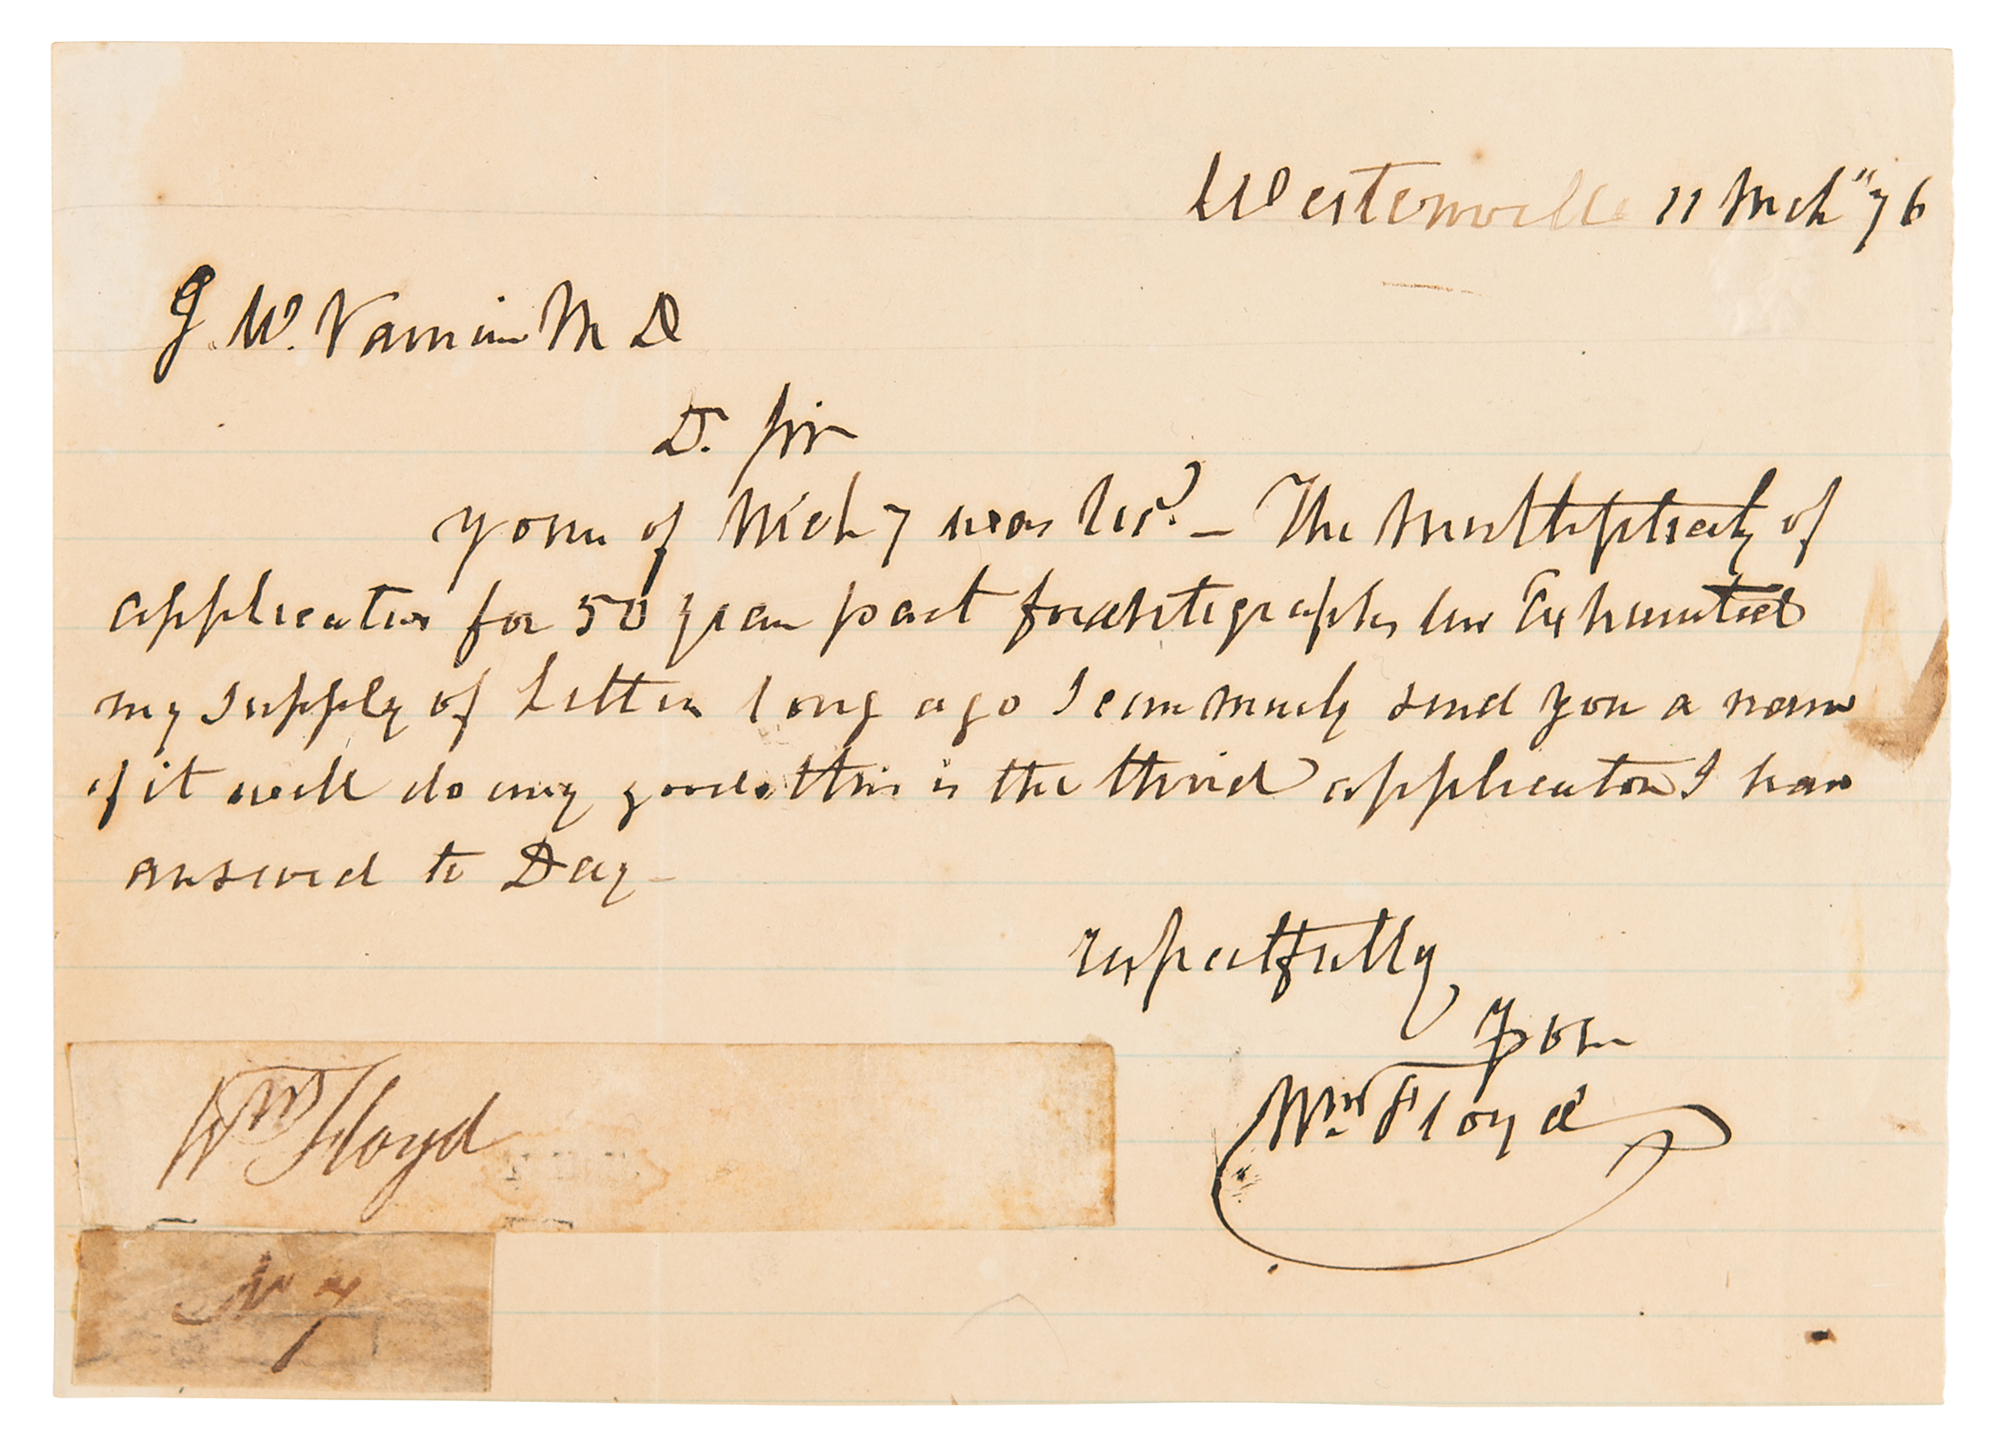 Westernville 11 Mch "76
J. W. Vannin M D
D. Sir
Yours of Mch 7 was Recd. – The Multiplicity of
application for 50 years past for Autographs has Exhausted
my supply of Letters long ago I can merely send you a name
if it will do any good. this is the third application I have
answered to Day –
respectfully
Yours
Wm. Floyd
Wm Floyd
No 7